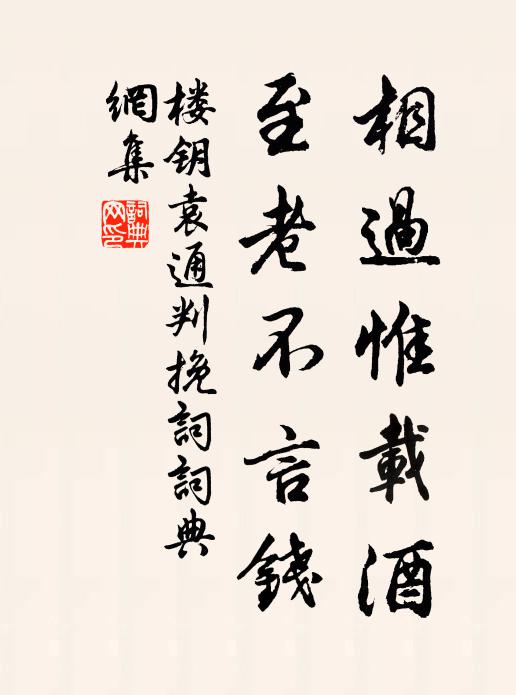 相過惟載酒
至老不言錢
楼钥袁通判挽詞詞典
網集
詞典
网印